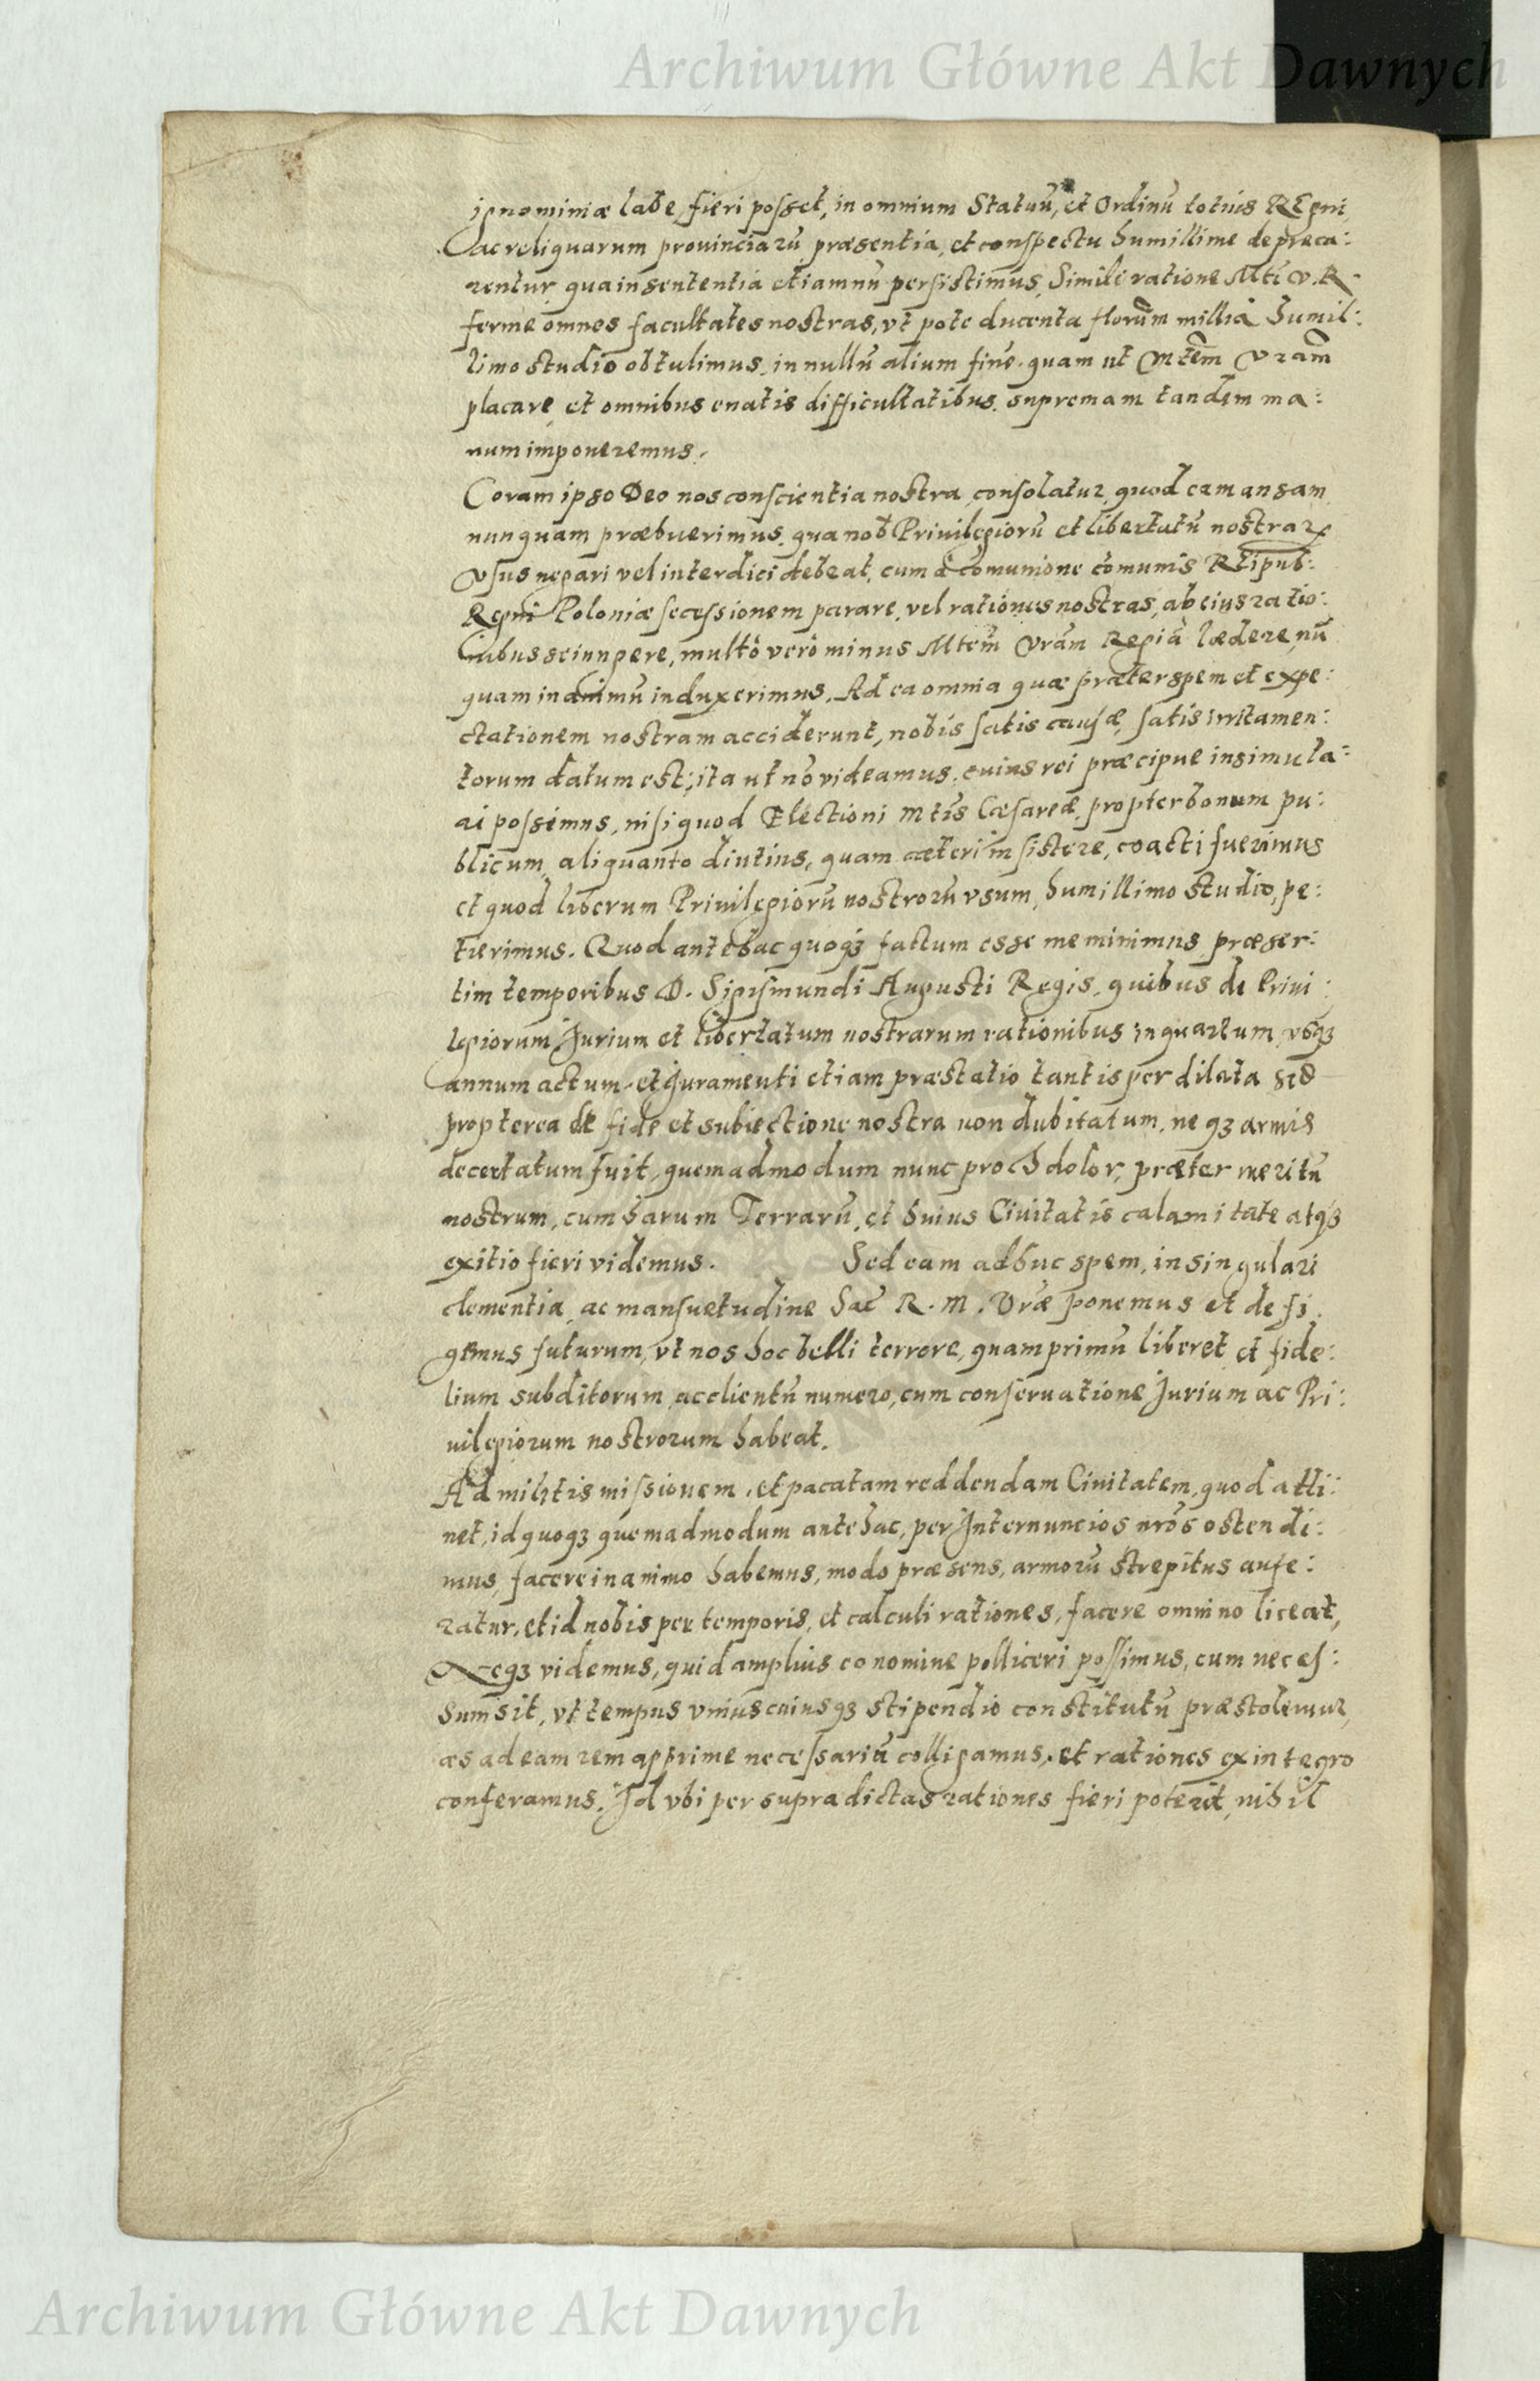 Archiwum Główne Akt Dawnych
ignominiæ labe, fieri posset, in omnium Statuū, et Ordinū totius REgni,
ac reliquarum prouinciarū præsentia, et conspectu humillime depreca:
rentur, qua in sententia etiamnū persistimus, Simili ratione Mti V. R.
ferme omnes facultates nostras, vt pote ducenta florum̄ millia humil:
limo studio obtulimus, in nullū alium fine, quam ut Mtem̄ Vram̄
placare, et omnibus enatis difficultatibus, supremam tandem ma:
num imponeremus.
Coram ipso Deo nos conscientia nostra consolatur, quod eam ansam
nunquam præbuerimus, qua nob̄ Priuilegiorū et libertatū nostrarꝝ
Vsus negari vel interdici debeat, cum à com̄unione com̄unis Reipub:
Regni Poloniæ secessionem parare, vel rationes nostras, ab eius ratio:
nibus seiungere, multò verò minus Mtem̄ Vram̄ Regiā lædere, nū
quam in animū induxerimus. Ad ea omnia quæ præter spem et expe:
ctationem nostram acciderunt, nobis satis causæ, satis irritamen:
torum datum est; ita ut nō videamus, cuius rei præcipue insimula:
ri possimus, nisi quod Electioni Mtis Cæsareæ, propter bonum pu:
blicum, aliquanto diutius, quam cæteri insistere, coacti fuerimus
et quod liberum Priuilegiorū nostrorū vsum, humillimo studio, pe:
tierimus. Quod antehac quoqꝫ factum esse meminimus præser:
tim temporibus D. Sigismundi Augusti Regis, quibus de Priui:
legiorum Jurium et libertatum nostrarum rationibus in quartum vsqꝫ
annum actum, et Juramenti etiam præstatio tantisper dilata sed
propterea de fide et subiectione nostra non dubitatum, neqꝫ armis
decertatum fuit, quemadmodum nunc proch dolor, præter meritū
nostrum, cum harum Terrarū, et huius Ciuitatis calamitate atqꝫ
exitio fieri videmus. Sed eam adhuc spem, in singulari
clementia, ac mansuetudine Sac̄ R. M. Vræ ponemus et defi:
gemus futurum, vt nos hoc belli terrore, quamprimū liberet et fide:
lium subditorum, ac clientū numero, cum conseruatione Jurium ac Pri:
uilegiorum nostrorum habeat.
Ad militis missionem, et pacatam reddendam Ciuitatem, quod atti:
net, id quoqꝫ quemadmodum antehac, per Internuncios nrōs ostendi:
mus, facere in animo habemus, modo præsens, armorū strepitus aufe:
ratur, et id nobis per temporis, et calculi rationes, facere omnino liceat,
Neqꝫ videmus, quid amplius eo nomine polliceri possimus, cum neces:
sum sit, vt tempus vniuscuiusqꝫ stipendio constitutū præstolemur,
æs ad eam rem apprime necessariū colligamus, et rationes ex integro
conferamus. Id vbi per supradictas rationes fieri poterit, nihil
Archiwum Główne Akt Dawnych